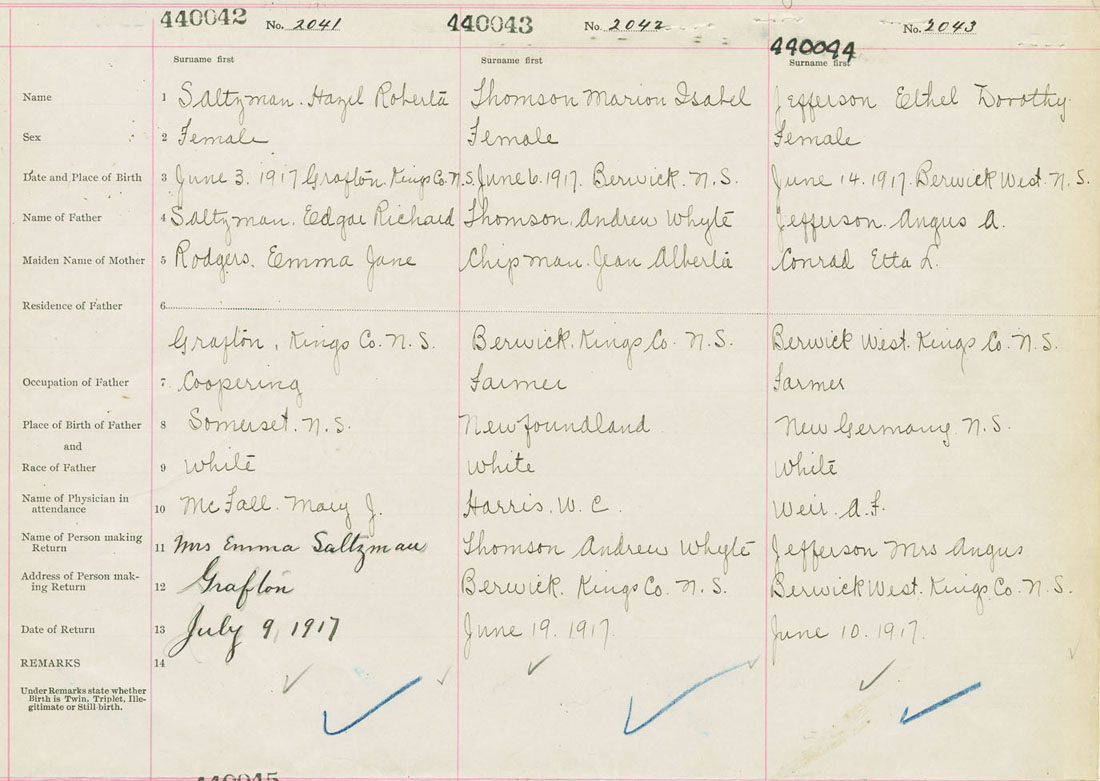 440042 No. 2041 440043 No. 2042 440044 No. 2043
Surname first Surname first Surname first
Name 1 Saltzman. Hazel Roberta Thomson Marion Isabel Jefferson Ethel Dorothy
Sex 2 Female Female Female
Date and Place of Birth 3 June 3. 1917 Grafton. Kings Co. N.S. June 6. 1917. Berwick. N.S. June 14. 1917. Berwick West. N.S.
Name of Father 4 Saltzman. Edgar Richard Thomson. Andrew Whyte Jefferson. Angus A.
Maiden Name of Mother 5 Rodgers. Emma Jane Chipman. Jean Alberta Conrad Etta L.
Residence of Father 6
Grafton, Kings Co. N.S. Berwick. Kings Co. N.S. Berwick West. Kings Co. N.S.
Occupation of Father 7 Coopering Farmer Farmer
Place of Birth of Father 8 Somerset. N.S. Newfoundland New Germany N.S.
and
Race of Father 9 White White White
Name of Physician in
attendance 10 McFall. Mary J. Harris. W. C. Weir. A.F.
Name of Person making
Return 11 Mrs Emma Saltzman Thomson Andrew Whyte Jefferson Mrs Angus
Address of Person mak-
ing Return 12 Grafton Berwick. Kings Co. N.S. Berwick West. Kings Co. N.S.
Date of Return 13 July 9, 1917 June 19. 1917. June 10. 1917.
REMARKS 14
Under Remarks state whether
Birth is Twin, Triplet, Ille-
gitimate or Still birth.
440045